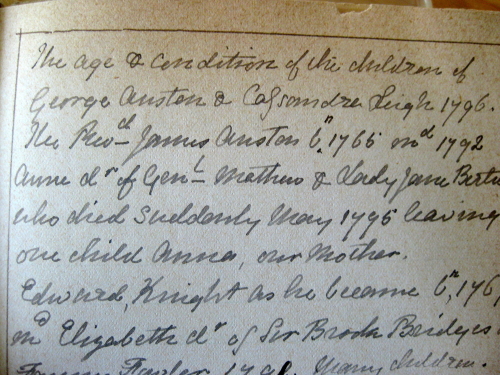 The age & condition of the children of
George Austen & Cassandra Leigh 1796.
The Revd James Austen bn 1765 md 1792
Anne dr of Genl Mathew & Lady Jane Bertie
who died suddenly May 1795 leaving
one child Anna, our Mother.
Edward, Knight as he became bn, 176
md Elizabeth dr of Sir Brook Bridges
1791. Many children.